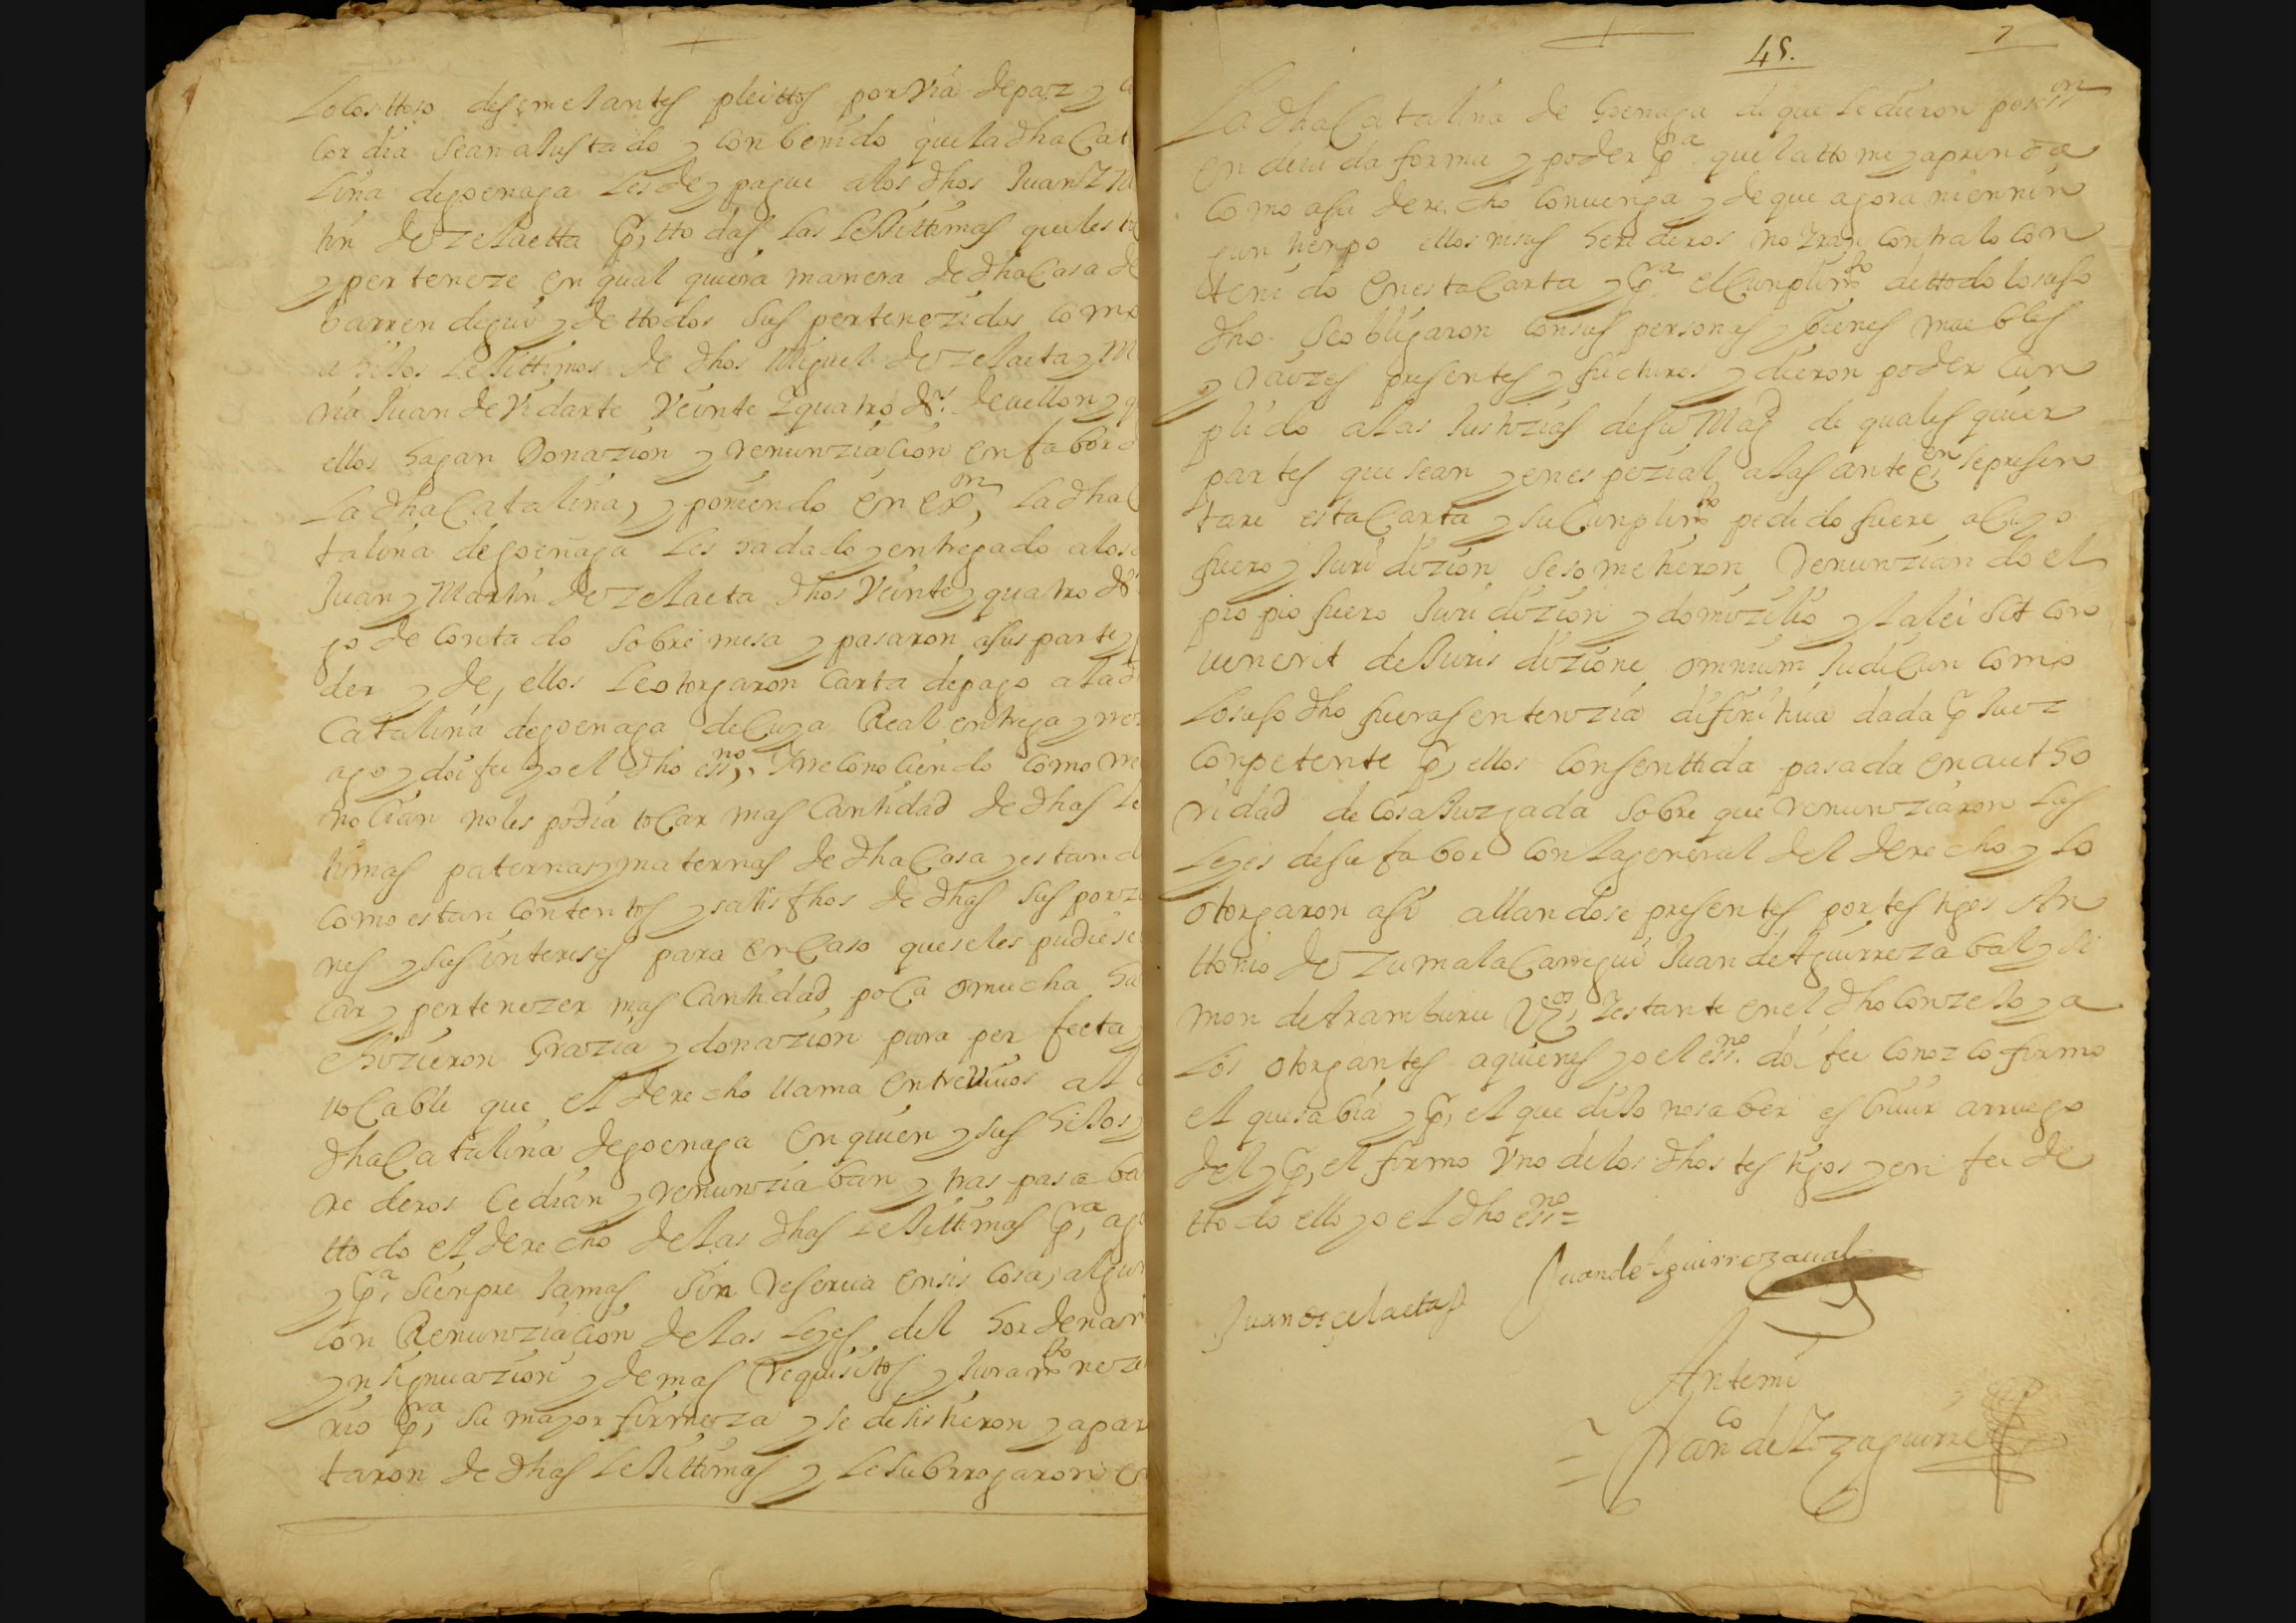 Lo costtoso de semelantes pleittos por via de paz y
cordia se an alustado y conbenido que la dha Cat
lina de goenaga les de y pague a los dhos Juan y
tin de zelaetta p, ttodas las lellittimas que les
y perteneze en qual quiera manera de dha Casa de
barrendigui y de ttodos sus pertenezidos como
a hilos lellittimos de dhos Miguel de zelaeta y M
ria Juan de Vidarte Veinte y quatro ds. de vellon y q
ellos hagan Donazion y renunziacion en fabor d
La dha Catalina, y poniendo en exon, La dha C
talina de goenaga les ha dado y entregado a los
Juan y Martin de zelaeta dhos Veinte y quatro ds
go de contado sobre mesa y pasaron a sus parte y
der y de, ellos le otorgaron Carta de pago a la d
Catalina de goenaga de Cuya Real entrega y re
ago y doi fee yo el dho essno, Y rreconociendo como re
nocian no les podia tocar mas Cantidad de dhas le
timas paternas y maternas de dha Casa y estand
como estan contentos y satisfhos de dhas sus porzi
nes y sus intereses para en Caso que se les pudiese
car y pertenezer mas Cantidad poca o mucha ha
e hizieron Grazia y donazion pura perfecta y
vocable que el derecho llama entre vivos a l
dha Catalina de goenaga en quien y sus hilos y
rederos Cedian y renunziaban y traspasaba
ttodo el derecho de las dhas lellittimas pra, ag
y pa, sienpre Jamas sin reserua en sis cosa, algun
con Renunziacion de las leyes del hordenam
ynsignuazion y demas requisitos y Juramto neze
rio pra, su mayor firmeza y se desistieron y apar
taron de dhas lellittimas y le subrrogaron e
45.
7
La dha Catalina de Goenaga de que le dieron posesson
en deuida forma y poder pa que la ttome y aprenda
como a su derecho conuenga y de que agora ni en nin
gun tienpo ellos ni sus herederos no yran contra lo con
tenido en esta Carta y pa el Cunplimto de ttodo lo suso
dho se obligaron con sus personas y bienes muebles
y raizes presentes y fucturos y dieron poder Cun
plido a las Justizias de su Magd de quales quier
partes que sean y en espezial a las ante quien se presen
tare esta Carta y su Cunplimto pedido fuere a Cuyo
fuero y Juridizion se sometieron renunziando el
propio fuero Juridizion y domizilio y la lei sit con
uenerit de Juris dizione omnium Judicun como
lo suso dho fuera sentenzia difinitiua dada p Juez
Conpetente p, ellos consenttida pasada en autho
ridad de cosa Juzgada sobre que renunziaron las
leyes de su fabor con la general del derecho y lo
otorgaron asi allandose presentes por testigos An
ttonio de zumalacarregui Juan de Aguirrezabal y Si
mon de Aramburu Vos, y estante en el dho Conzejo y a
los otorgantes a quienes yo el essno. doi fee conozco firmo
el que sabia y p, el que dijo no saber escriuir a rruego
del y p, el firmo vno de los dhos testigos y en fee de
ttodo ello yo el dho essno=
Juan de Aguirrezaual
Juan de celaeta
Ante mi
Franco de Yzaguirre